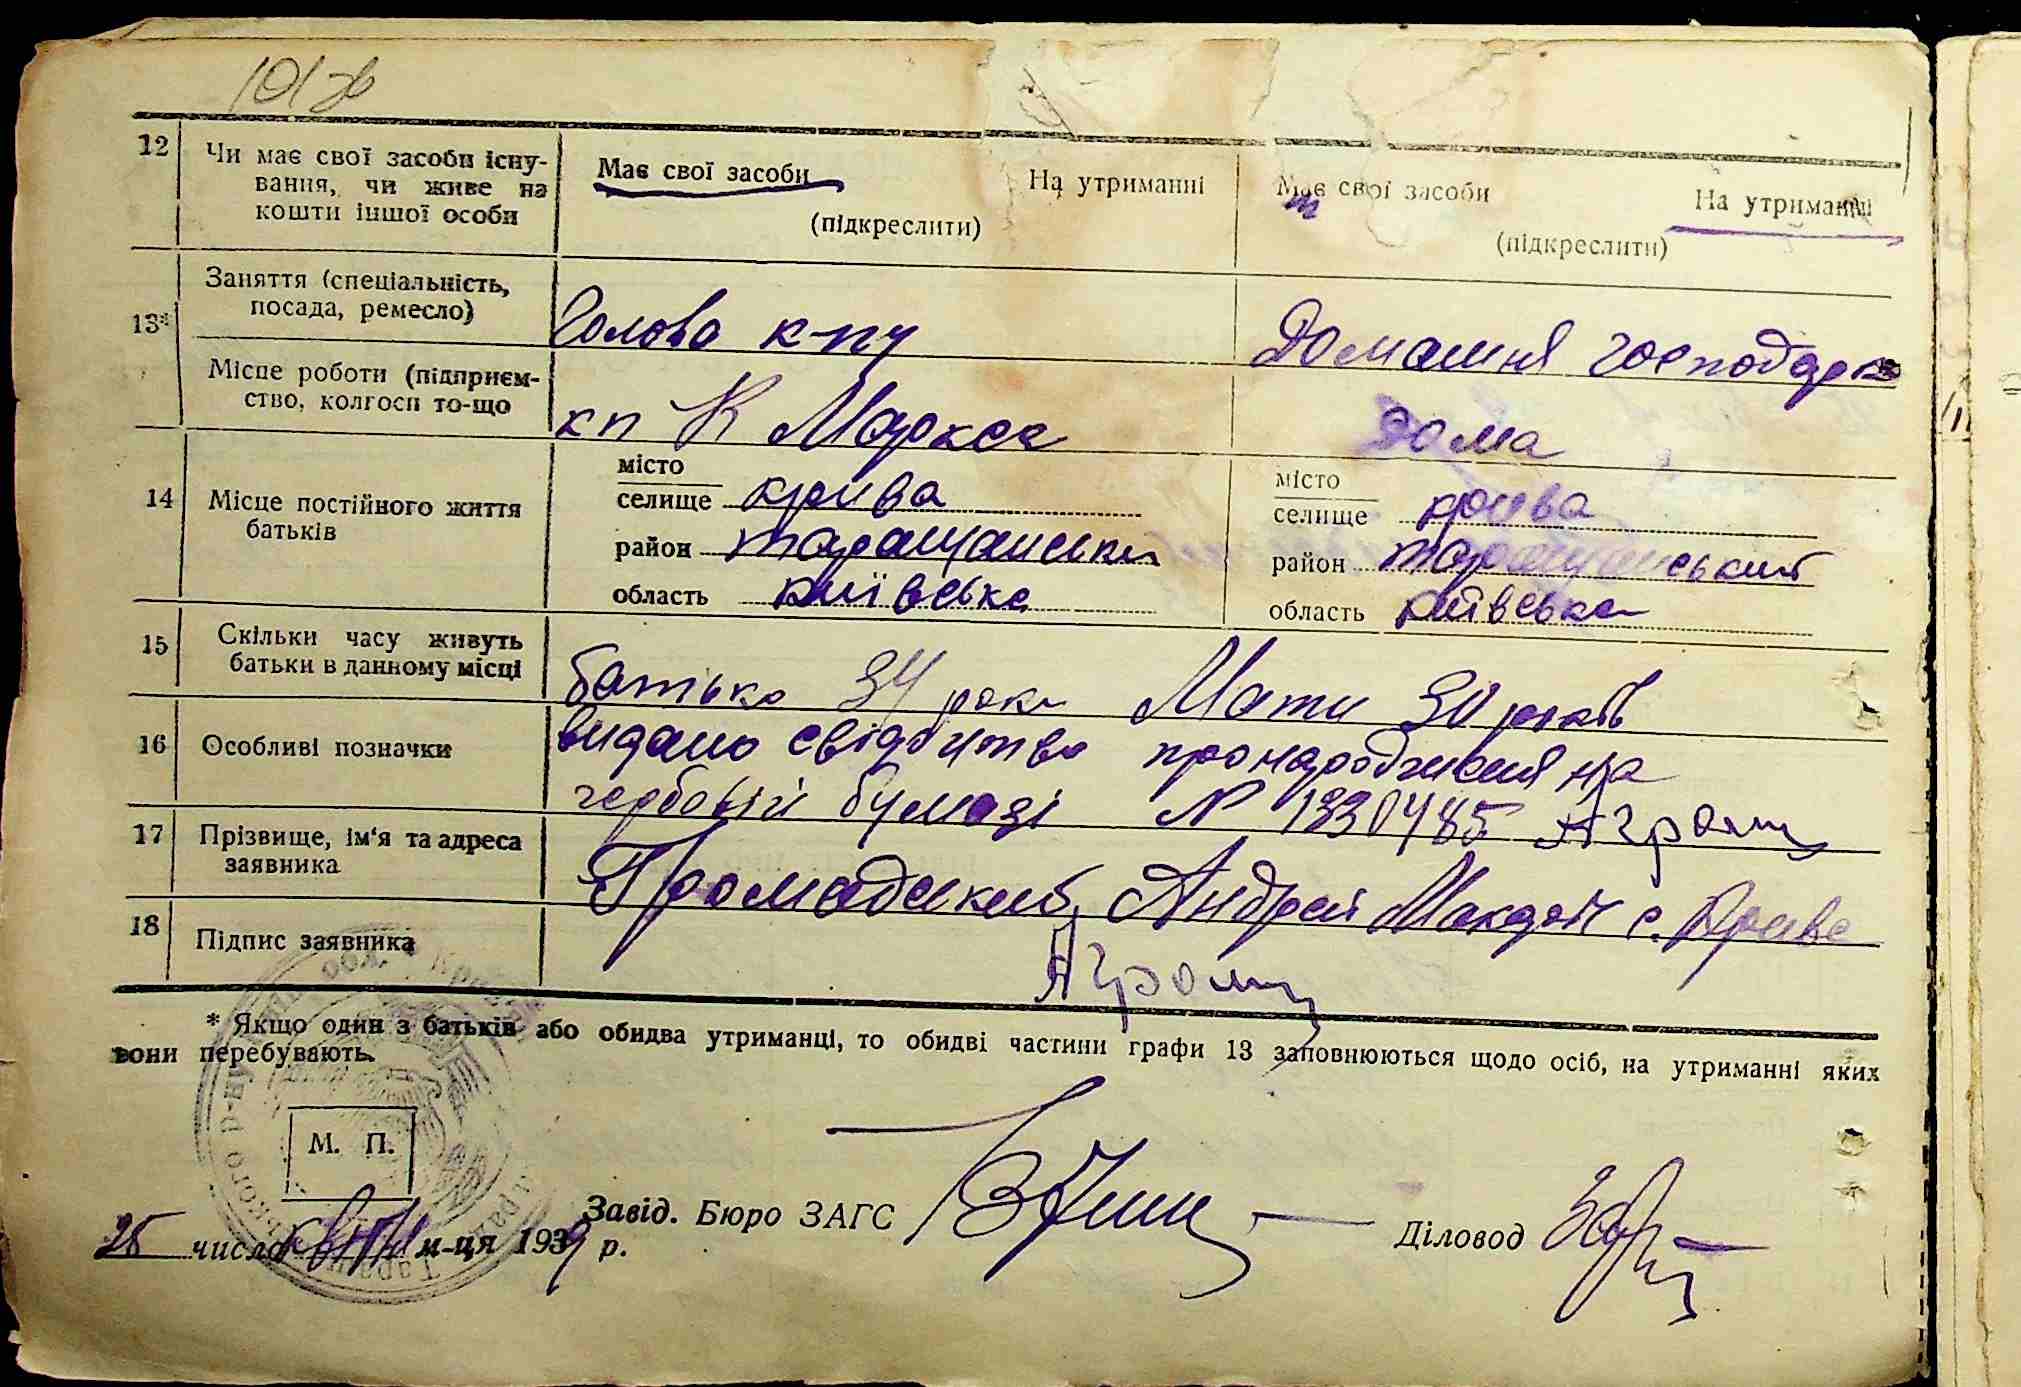 101 зв
12 Чи має свої засоби існу-
вання, чи живе на
кошти іншої особи
Має свої засоби На утриманні
(підкреслити)
Має свої засоби На утриманні
(підкреслити)
13* Заняття (спеціальність,
посада, ремесло)
Голова к-пу Домашня господарка
Місце роботи (підприєм-
ство, колгосп то-що
кп К Маркса Дома
14 Місце постійного життя
батьків
місто
селище крива
район таращанськи
область київська
місто
селище крива
район таращанський
область київська
15 Скільки часу живуть
батьки в данному місці
батько 34 роки Мати 30 років
16 Особливі позначки
видано свідоцтво про народження на
гербовій бумазі № 1330485 Агром
17 Прізвище, ім'я та адреса
заявника
Громадський Андрей с. Крива
18 Підпис заявника
Агром
* Якщо один з батьків або обидва утриманці, то обидві частини графи 13 заповнюються щодо осіб, на утриманні яких
вони перебувають.
М. П.
Завід. Бюро ЗАГС
Діловод
25 числа квітня м-ця 1939 р.